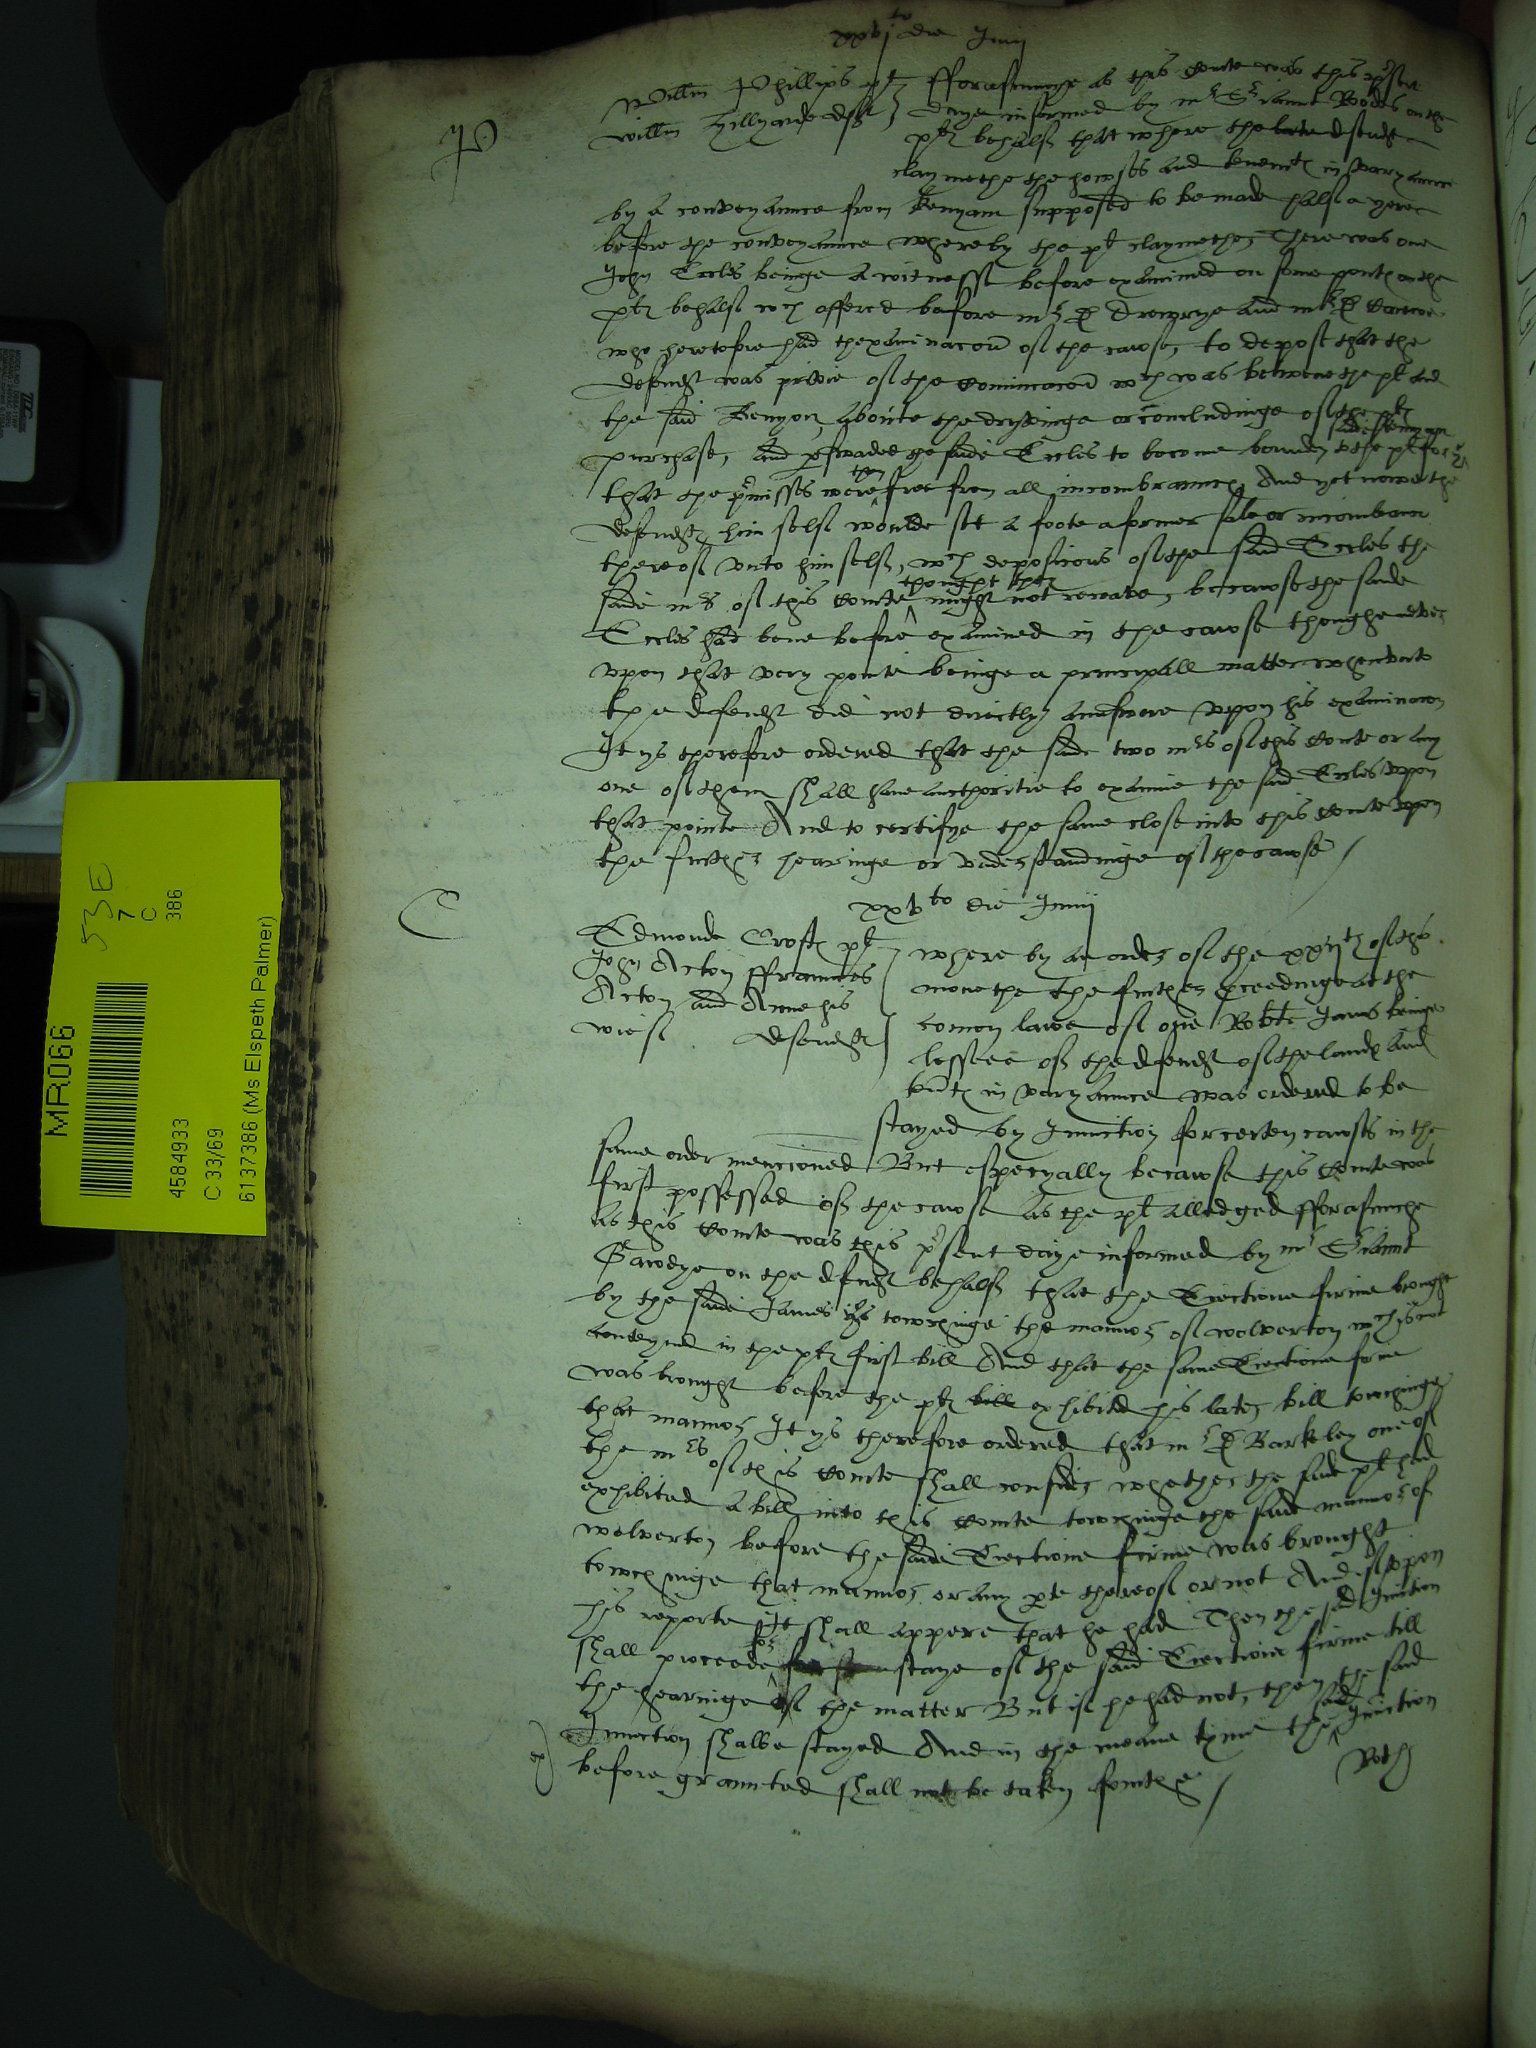 xxvj to die Junij
P
Willm Phillips plt
Willm Hillyarde deft
fforasmuche as this Courte was this present
daye informed by mr Sriaunt Rodes on the
pltes behalf that where the defendt
claymethe the howses and tenemtes in varyaunce
by a conveyaunce from Kenyam supposed to be made half a yere
before the conveyaunce whereby the plt claymethe, There was one
John Eccles beinge a witnesse before examined on some pointes on the
pltes behalf wch offered before mr D Drewrye and mr D
who heretofore had thexaminacon of the cawse, to depose that the
defendt was privie of the comunicacon wch was betwene the plt and
the said Kenyon, aboute the dryvinge or concludinge of the pltes
purchase, and perswaded the saide Eccles to become bounden to the plt for
said Kenyam
that the premisses were then free from all incombraunces And yet nowe the
defendt him self woulde set a foote a former sale or incombraunce
thereof unto himself, wch deposicons of the said Eccles the
saide mrs of this Courte thought they might not receave, because the saide
Eccles had bene before examined in the cawse thoughe never
upon that very pointe beinge a principall matter whereunto
the defendt did not directly aunswere upon his examinacon
It ys therefore ordered that the saide two mrs of this Courte or any
one of them shall have aucthoritie to examine the said Eccles upon
that pointe And to certifye the same close into this Courte upon
the further hearinge or understandinge of the cawse /
xxv to die Junij
C
Edmonde Crofts plt
John Acton ffraunces
Acton and Anne his
wief defendts
where by an order of the xxijth of this
monethe the further proceedinge at the
comon lawe of one Robte James beinge
lessee of the defendt of the landes and
tentes in varyaunce was ordered to be
stayed by Injunction for certen cawses in the
same order mencioned But especyally because this Courte was
first possessed of the cawse as the plt alledged fforasmuche
as this Courte was this present daye informed by mr Sriaunt
Gawdye on the defendt behalf that the Ejectione firme brought
by the saide James ys towchinge the mannor of wolverton wch ys not
conteyned in the pltes first bill And that the same Ejectione firme
was brought before the plt bill exhibited his later bill towchinge
that mannor It ys therefore ordered that mr D Barkeley one of
the mrs of this Courte shall consider whether the saide plt had
exhibited a bill into this Courte towchinge the saide mannor of
wolverton before the saide Ejectione firme was brought
towchinge that mannor or any parte thereof or not And if upon
his reporte It shall appere that he had Then the said Injunction
shall proceede for staye of the said Ejectione firme till
the hearinge of the matter But if he had not, then the said
Injunction shalbe stayed And in the meane tyme the said Injunction
before graunted shall not be taken fourthe /
ex
Roth
MR066
53 E
7
C
386
4584933
C 33/69
6137386 (Ms Elspeth Palmer)